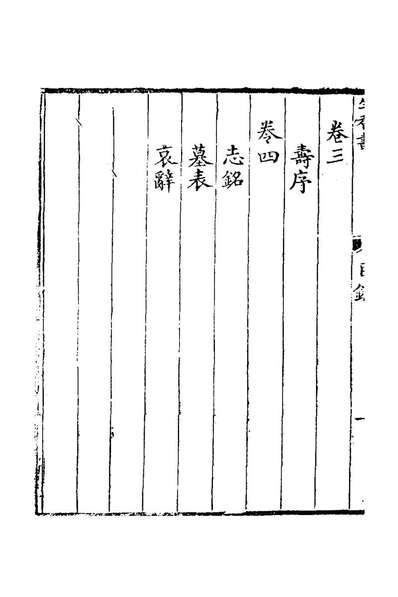 卷三
壽序
卷四
志銘
墓表
哀辭
目錄